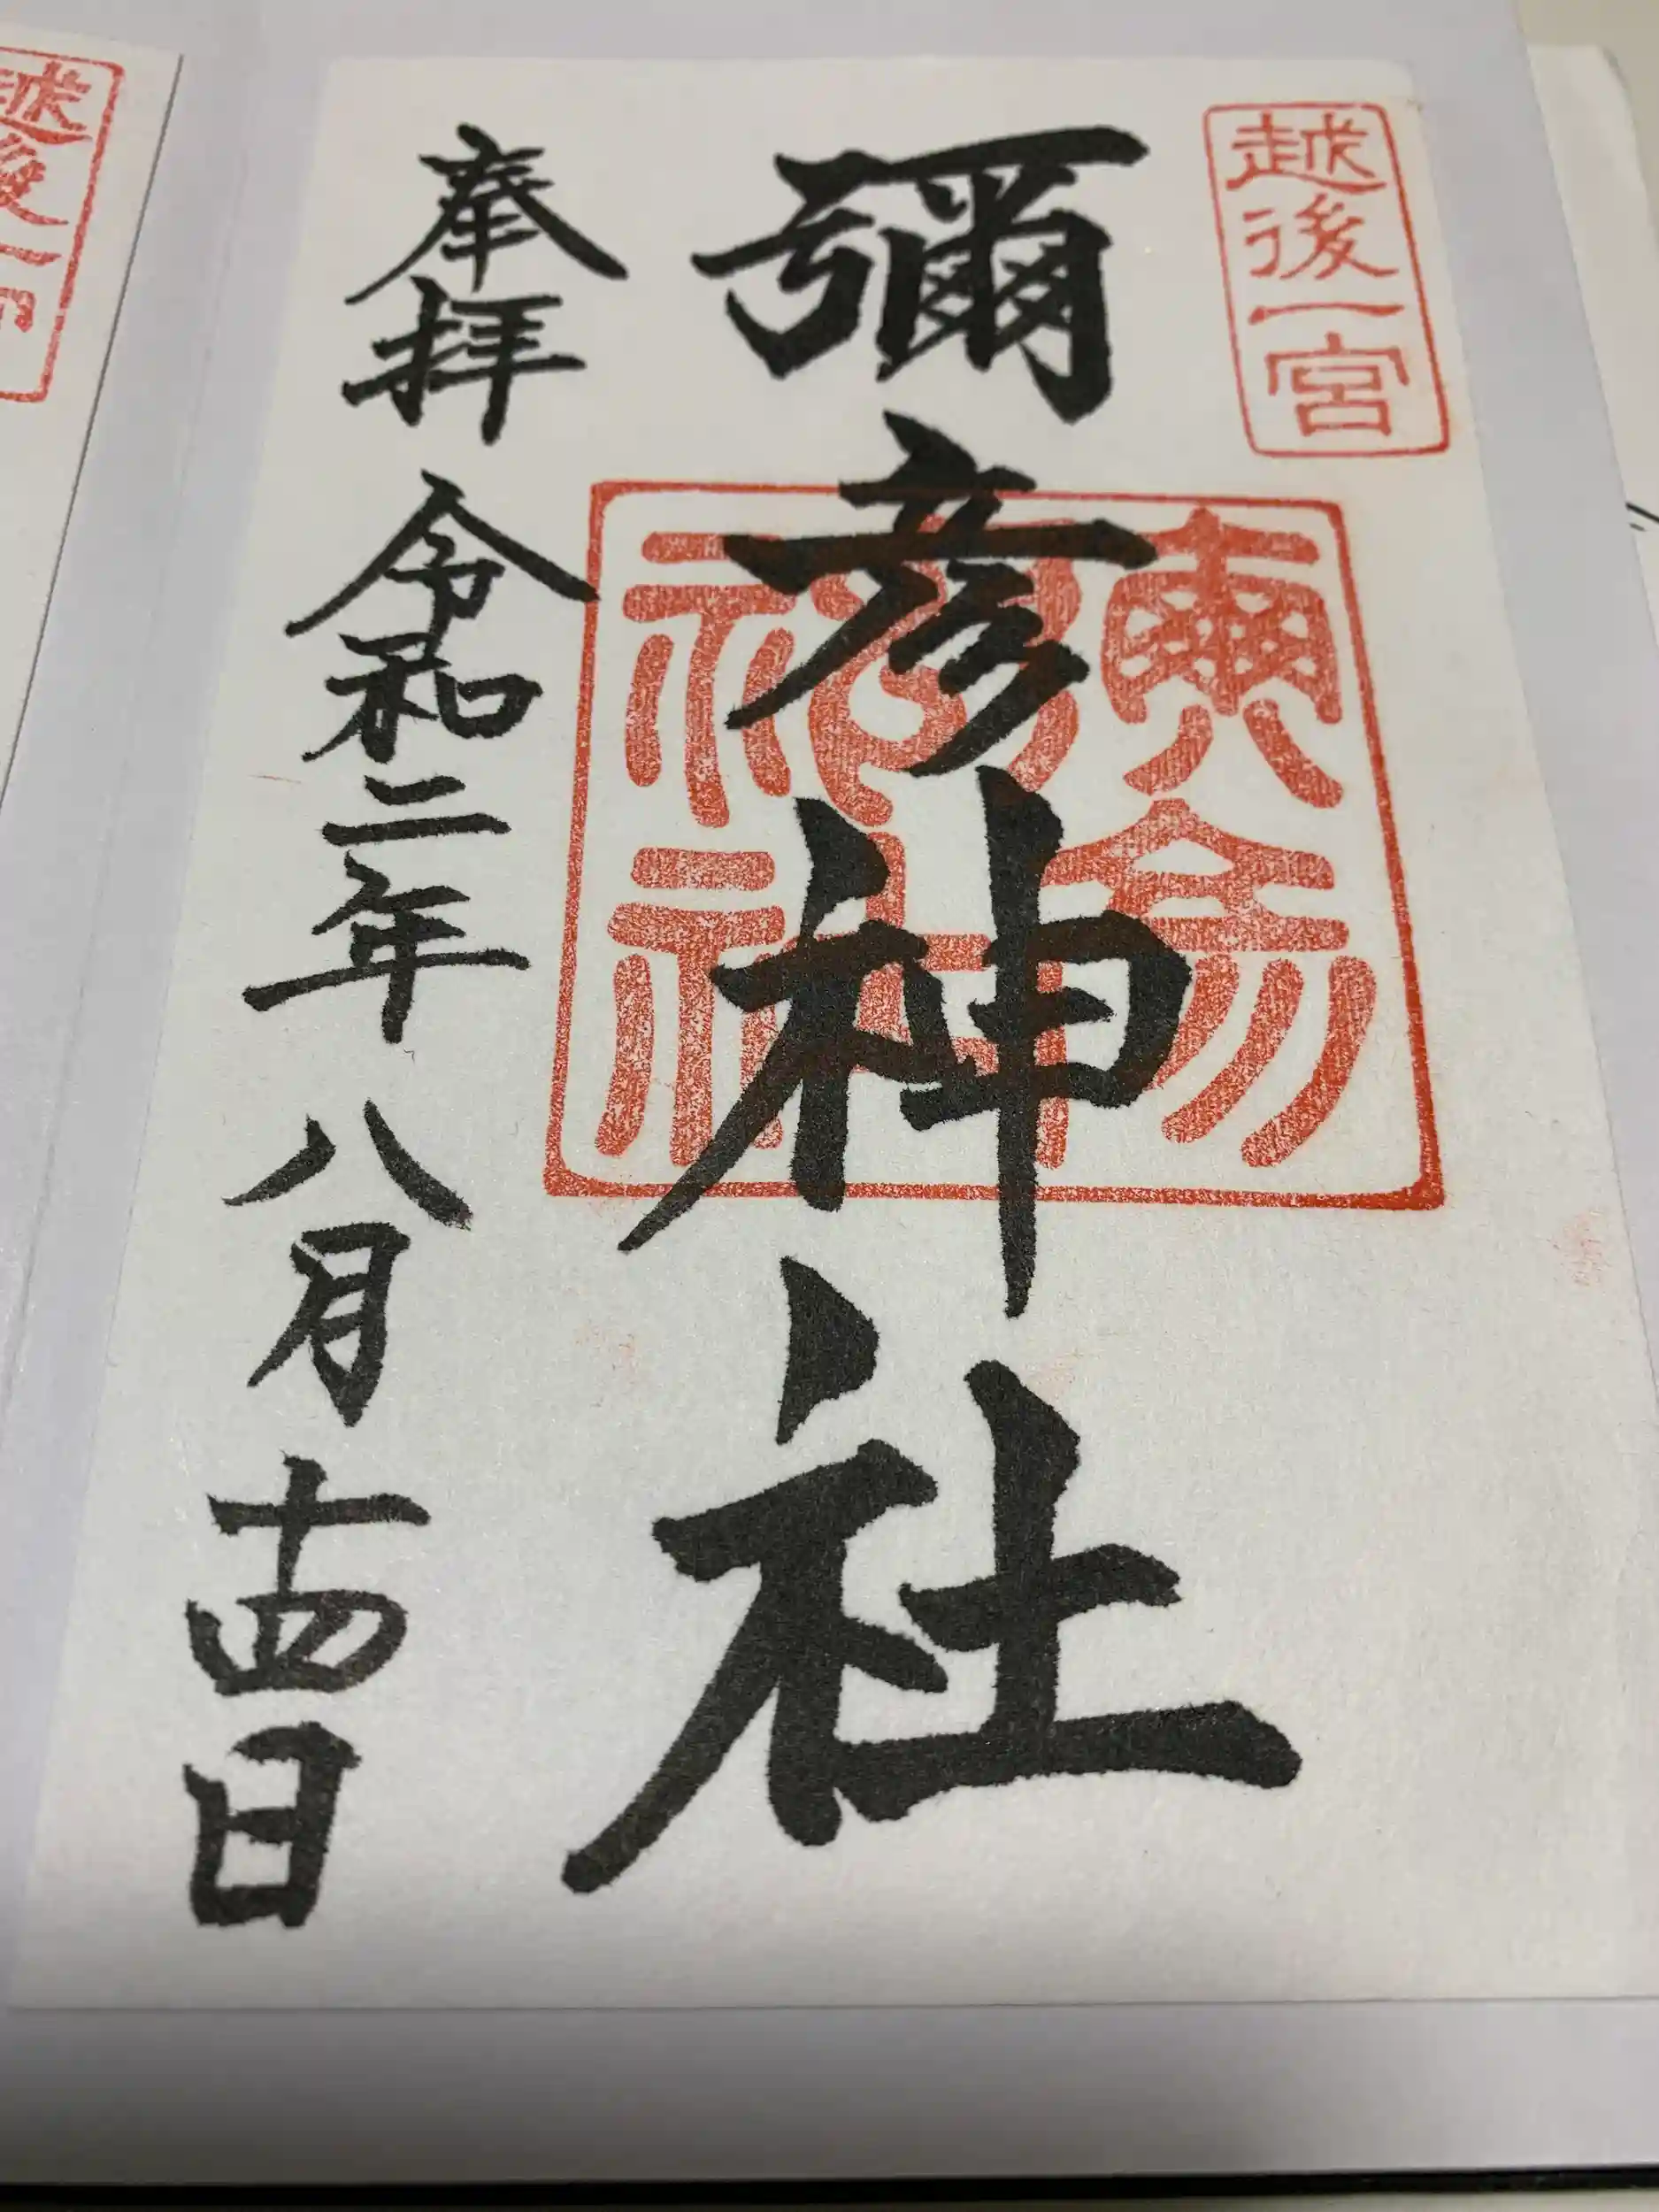 越後一宮
彌彦神社
奉拝 令和二年 八月 十四日
越後一